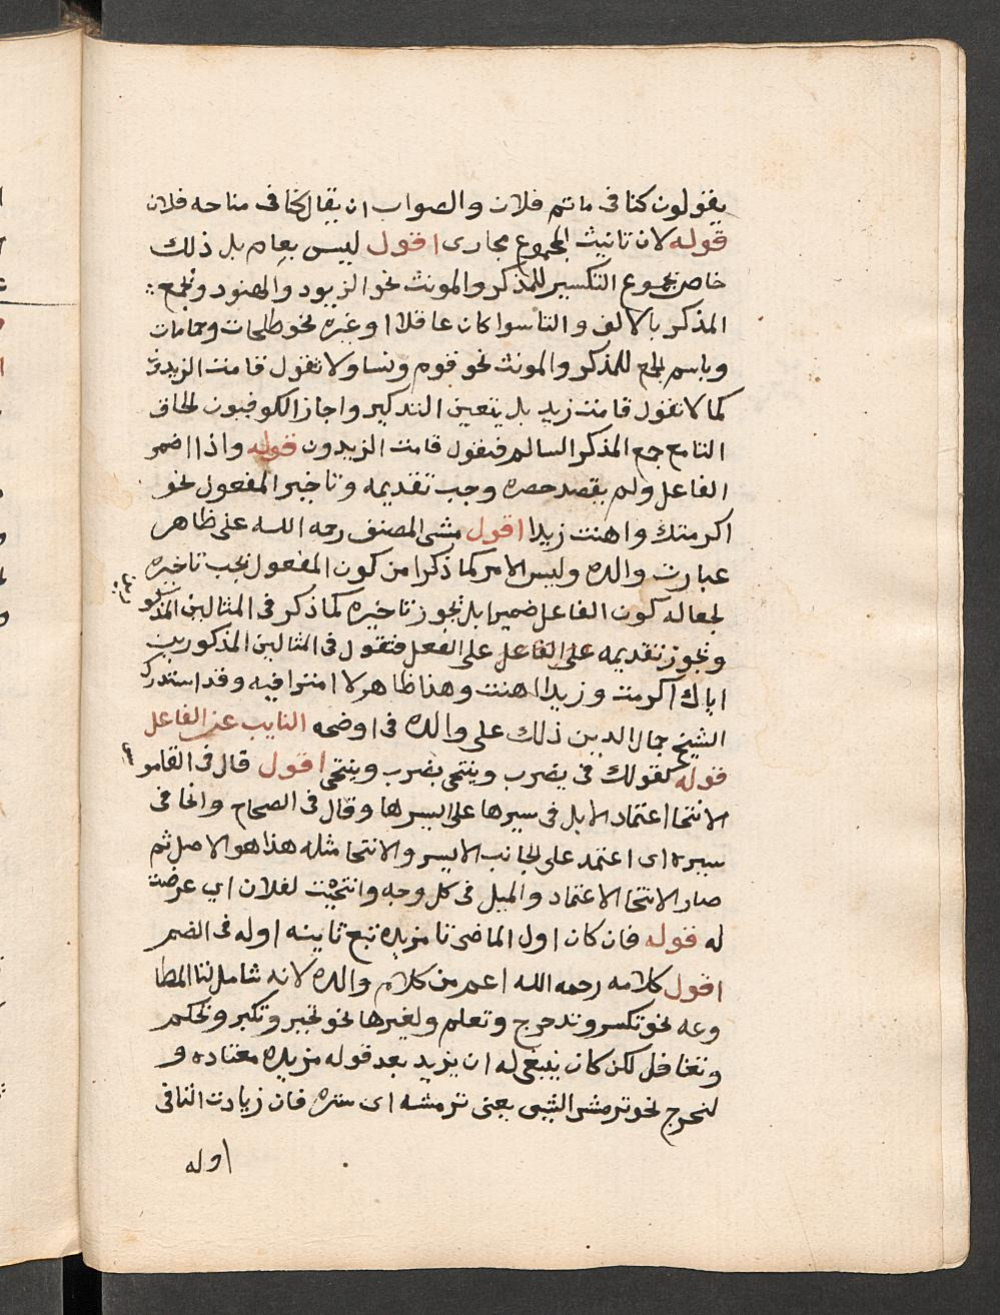 يقولون كنا فى ماتم فلان والصواب ان يقال كنا فى مناحه فلان
قوله لان تانيث الجموع مجازى اقول ليس بعام بل ذلك
خاص بجموع التكسير للمذكر والمونث نحو الزيود والهنود وبجمع
المذكر بالالف والتا سوا كان عاقلا او غيره نحو طلحات وحمامات
وباسم الجمع للمذكر والمونث نحو قوم ونسا ولا تقول قامت الزيدون
كما لا تقول قامت زيد بل يتعين التذكير واجاز الكوفيون لحاق
التا مع جمع المذكر السالم فتقول قامت الزيدون قوله واذا اضمر
الفاعل ولم يقصد حصره وجب تقديمه وتاخير المفعول نحو
اكرمتك واهنت زيدا اقول مشى المصنف رحمه الله على ظاهر
عبارت والده وليس الامر كما ذكرا من كون المفعول يجب تاخيره
لجعاله كون الفاعل ضميرا بل يجوز تاخيره كما ذكر فى المثالين
ويجوز تقديمه على الفاعل على الفعل فتقول فى المثالين المذكورين
اياك اكرمت وزيدا اهنت وهذا ظاهر لا امترا فيه وقد استدرك
الشيخ جمال الدين ذلك على والده فى اوضحه النايب عن الفاعل
قوله كقولك فى يضرب وينتحى يضرب وينتحى اقول قال فى القامو
الانتحا اعتماد الابل فى سيرها على ايسرها وقال فى الصحاح وانحا فى
سيره اى اعتمد على الجانب الايسر والانتحا مثله هذا هو الاصل ثم
صار الانتحا الاعتماد والميل فى كل وجه وانتحيت لفلان اي عرضت
له قوله فان كان اول الماضى تا مزيده تبع ثانيه اوله فى الضم
اقول كلامه رحمه الله اعم من كلام والده لانه شامل لتا المطا
وعه نحو تكسر وتدحرج وتعلم ولغيرها نحو تجبر وتكبر وتحكم
وتغافل لكن كان ينبغى له ان يزيد بعد قوله مزيده معتاده و
لنخرج نحو ترمش الشى يعنى ترمشه اى ستره فان زيادت التا فى
اوله